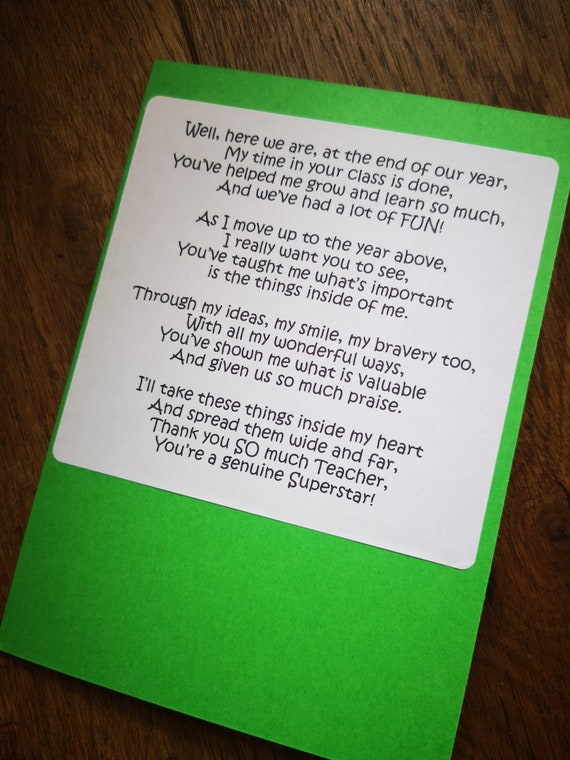 Well, here we are, at the end of our year,
My time in your class is done,
You've helped me grow and learn so much,
And we've had a lot of FUN!
As I move up to the year above,
I really want you to see,
You've taught me what's important
is the things inside of me.
Through my ideas, my smile, my bravery too,
With all my wonderful ways,
You've shown me what is valuable
And given us so much praise.
I'll take these things inside my heart
And spread them wide and far,
Thank you SO much Teacher,
You're a genuine Superstar!